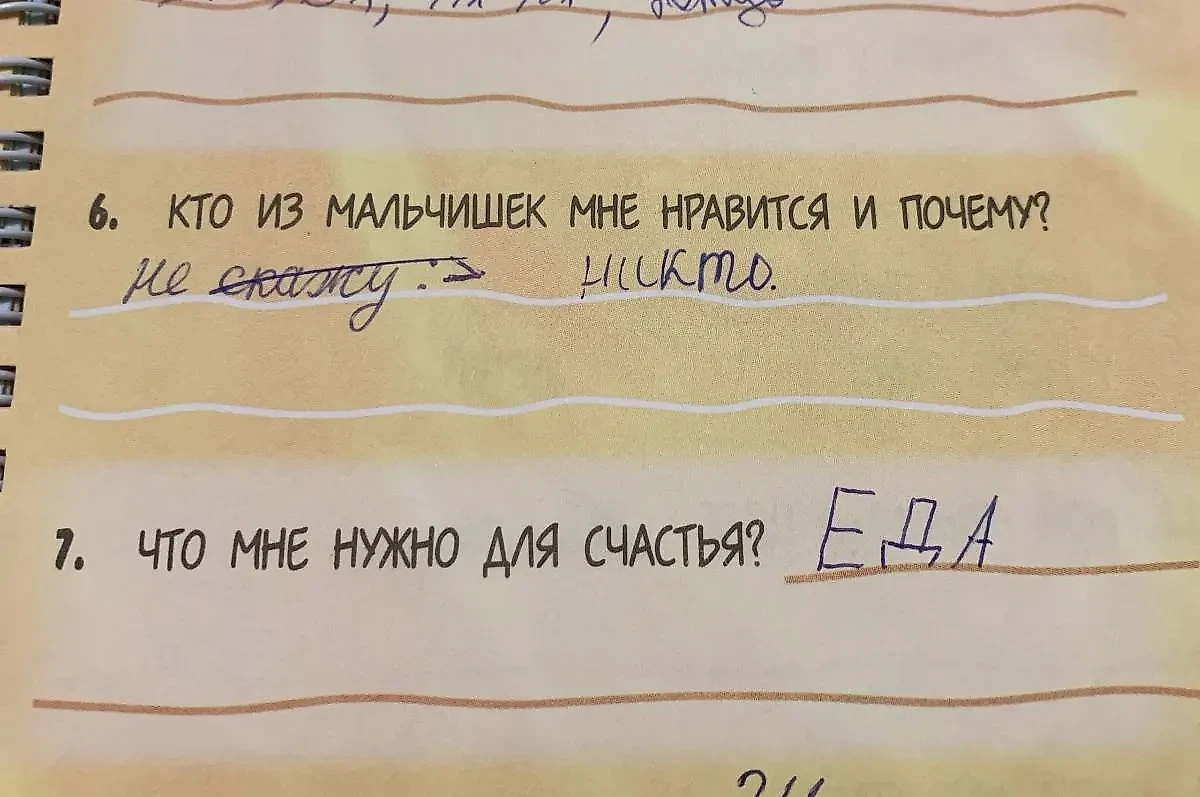 6. КТО ИЗ МАЛЬЧИШЕК МНЕ НРАВИТСЯ И ПОЧЕМУ?
не скажу :> никто.
7. ЧТО МНЕ НУЖНО ДЛЯ СЧАСТЬЯ? ЕДА